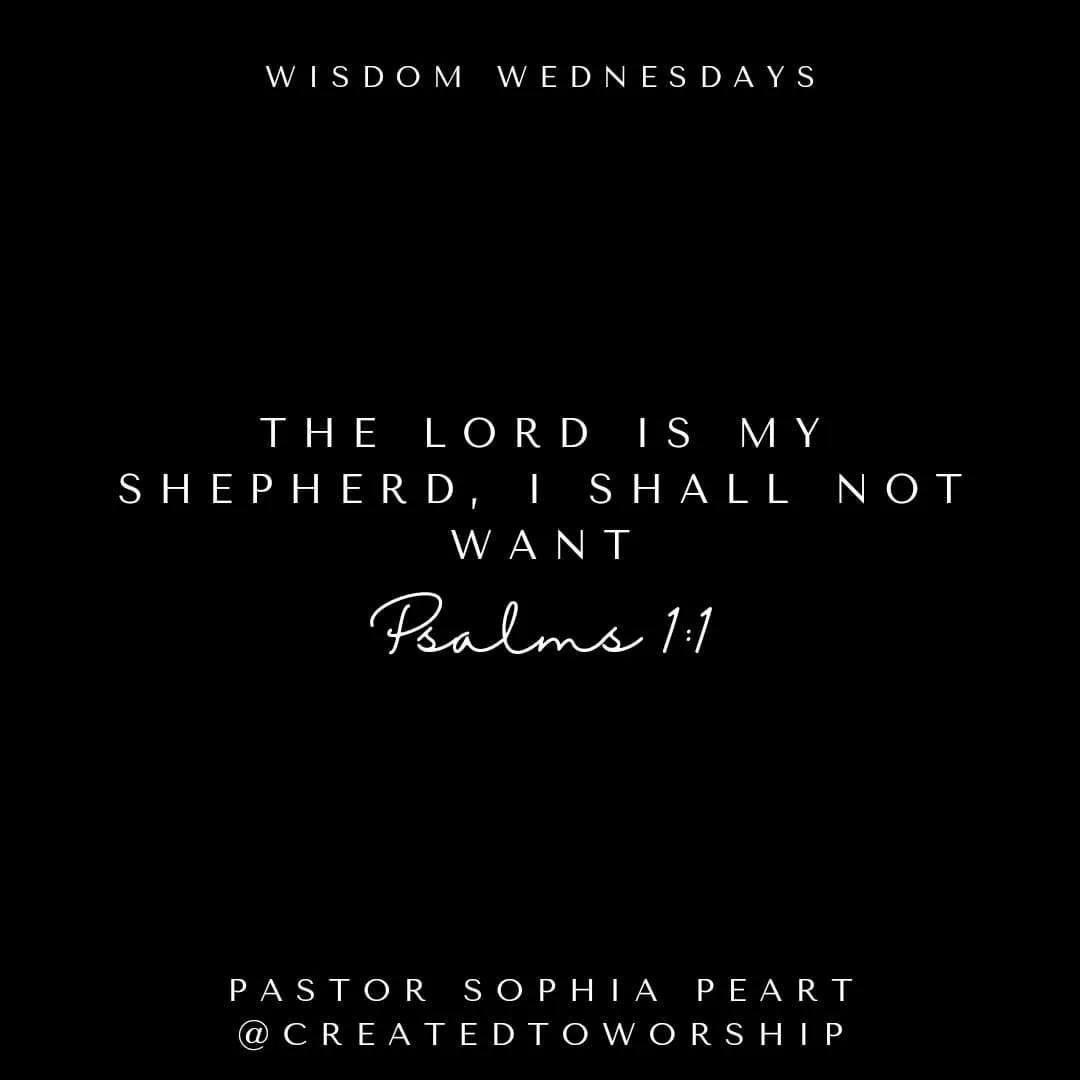 WISDOM WEDNESDAYS
THE LORD IS MY
SHEPHERD, I SHALL NOT
WANT
Psalms 1:1
PASTOR SOPHIA PEART
@CREATEDTOWORSHIP